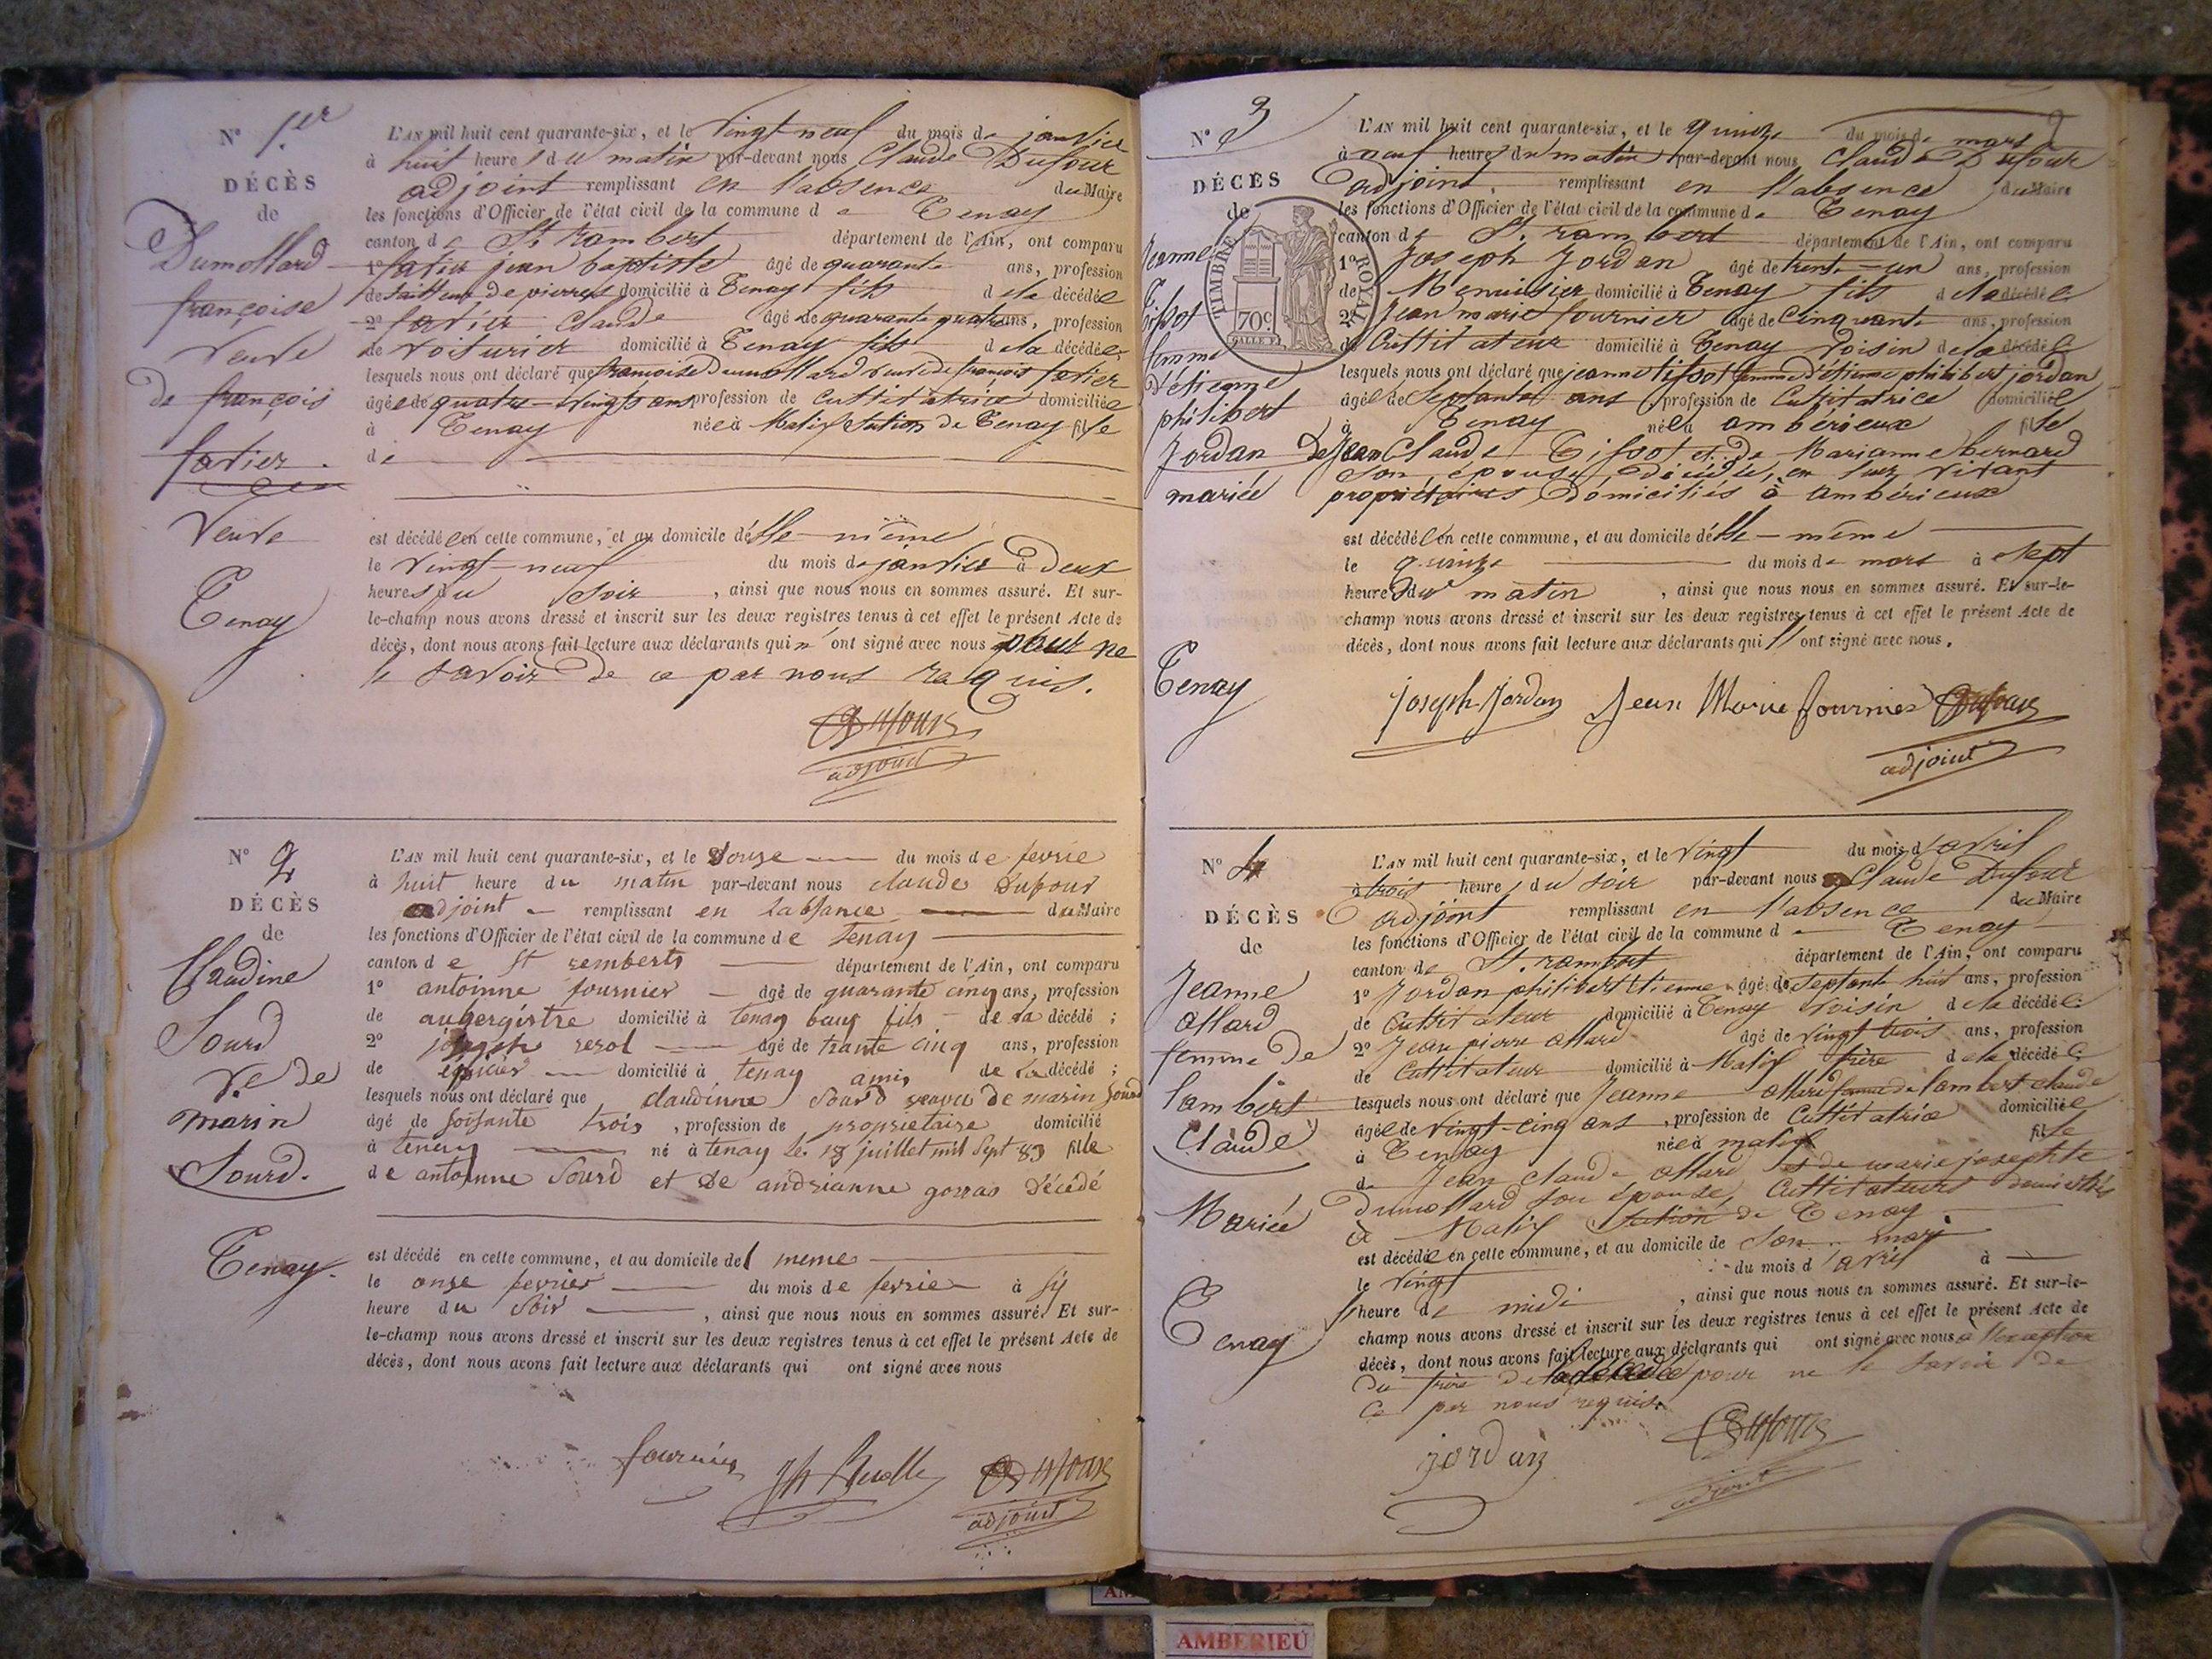 N° 1.er
DÉCÈS
de
Dumollard
françoise
Veuve
de françois
favier.
Veuve
Tenay
L'AN mil huit cent quarante-six, et le vingt neuf du mois de janvier
à huit heures du matin par-devant nous Claude Dufour
adjoint remplissant en l'absence du Maire
les fonctions d'Officier de l'état civil de la commune de Tenay
canton de St rambert département de l'Ain, ont comparu
1° favier jean baptiste âgé de quarante ans, profession
de de pierres domicilié à Tenay fils de la décédée
2° favier Claude âgé de quarante quatre ans, profession
de Voiturier domicilié à Tenay fils de la décédée;
lesquels nous ont déclaré que françoise Dumollard veuve de françois favier
âgée de quatre-vingts ans profession de Cultivatrice domiciliée
à Tenay née à Malix Section de Tenay fille
de
est décédée en cette commune, et au domicile d'elle-même
le vingt-neuf du mois de janvier à deux
heures du soir, ainsi que nous nous en sommes assuré. Et sur-
le-champ nous avons dressé et inscrit sur les deux registres tenus à cet effet le présent Acte de
décès, dont nous avons fait lecture aux déclarants qui n'ont signé avec nous pour ne
le savoir de ce par nous requis.
Dufour
adjoint
N° 2
DÉCÈS
de
Claudine
Sourd
Ve de
marin
Sourd.
Tenay.
L'AN mil huit cent quarante-six, et le Douze du mois de fevrie
à huit heure du matin par-devant nous claude Dufour
adjoint remplissant en labsance du Maire
les fonctions d'Officier de l'état civil de la commune de tenay
canton de St remberts département de l'Ain, ont comparu
1° antoinne fournier âgé de quarante cinq ans, profession
de aubergistre domicilié à tenay fils de la décédé;
2° joseph âgé de trante cinq ans, profession
de épicier domicilié à tenay amis de la décédé;
lesquels nous ont déclaré que claudinne Sourd veuve de marin Sourd
âgé de soisante trois, profession de proprietaire domicilié
à tenay né à tenay le 18 juillet mil Sept 83 fille
de antoinne Sourd et de andreanne gorras décédé
est décédé en cette commune, et au domicile del meme
le onze fevrier du mois de fevrie à six
heure du Soir, ainsi que nous nous en sommes assuré. Et sur-
le-champ nous avons dressé et inscrit sur les deux registres tenus à cet effet le présent Acte de
décès, dont nous avons fait lecture aux déclarants qui ont signé avec nous
fournier Dufour
adjoint
N° 3
DÉCÈS
de
Jeanne
Tissot
femme
d'étienne
philibert
Jordan
mariée
Tenay
TIMBRE ROYAL
70c
L'AN mil huit cent quarante-six, et le quinze du mois de mars
à neuf heures du matin par-devant nous Claude Dufour
adjoint remplissant en l'absence du Maire
les fonctions d'Officier de l'état civil de la commune de Tenay
canton de St. rambert département de l'Ain, ont comparu
1° Joseph Jordan âgé de trente-un ans, profession
de Menuisier domicilié à Tenay fils de la décédée
2° Jean marie fournier âgé de Cinquante ans, profession
de Cultivateur domicilié à Tenay Voisin de la décédée
lesquels nous ont déclaré que jeanne tissot femme d'étienne philibert jordan
âgée de Septante ans, profession de Cultivatrice domiciliée
à Tenay née à ambérieux fille
De Jean Claude Tissot et de Marianne bernard
Son épouse, décédés, en leur vivant
propriétaires domiciliés à ambérieux
est décédée en cette commune, et au domicile d'elle-même
le quinze du mois de mars à Sept
heures du matin, ainsi que nous nous en sommes assuré. Et sur-le-
champ nous avons dressé et inscrit sur les deux registres tenus à cet effet le présent Acte de
décès, dont nous avons fait lecture aux déclarants qui ont signé avec nous.
Joseph Jordan Jean Marie fournier Dufour
adjoint
N° 4
DÉCÈS
de
Jeanne
allard
femme de
lambert
Claude
Mariée
Tenay
L'AN mil huit cent quarante-six, et le vingt du mois d'avril
à trois heures du soir par-devant nous Claude Dufour
adjoint remplissant en l'absence du Maire
les fonctions d'Officier de l'état civil de la commune de Tenay
canton de St. rambert département de l'Ain, ont comparu
1° Jordan philibert Etienne âgé de Septante huit ans, profession
de Cultivateur domicilié à Tenay Voisin de la décédée;
2° Jean pierre allard âgé de vingt trois ans, profession
de Cultivateur domicilié à Malix frère de la décédée;
lesquels nous ont déclaré que Jeanne allard femme de lambert claude
âgée de vingt-cinq ans, profession de Cultivatrice domiciliée
à Tenay née à malix fille
de Jean claude allard et de marie josephte
Dumollard son épouse, Cultivateurs domiciliés
à Malix Section de Tenay
est décédée en cette commune, et au domicile de Son mari
le vingt du mois d'avril à
heure de midi, ainsi que nous nous en sommes assuré. Et sur-le-
champ nous avons dressé et inscrit sur les deux registres tenus à cet effet le présent Acte de
décès, dont nous avons fait lecture aux déclarants qui ont signé avec nous a l'exception
du frère de la décédée pour ne le savoir de
ce par nous requis.
jordan Dufour
adjoint
AMBERIEU